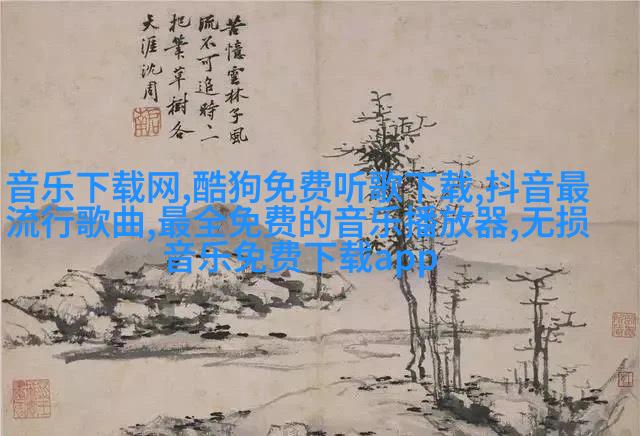 苦憶雲林子風
流不可追時〻
把筆草樹各
天涯沈周
音乐下载网,酷狗免费听歌下载,抖音最
流行歌曲,最全免费的音乐播放器,无损
音乐免费下载app